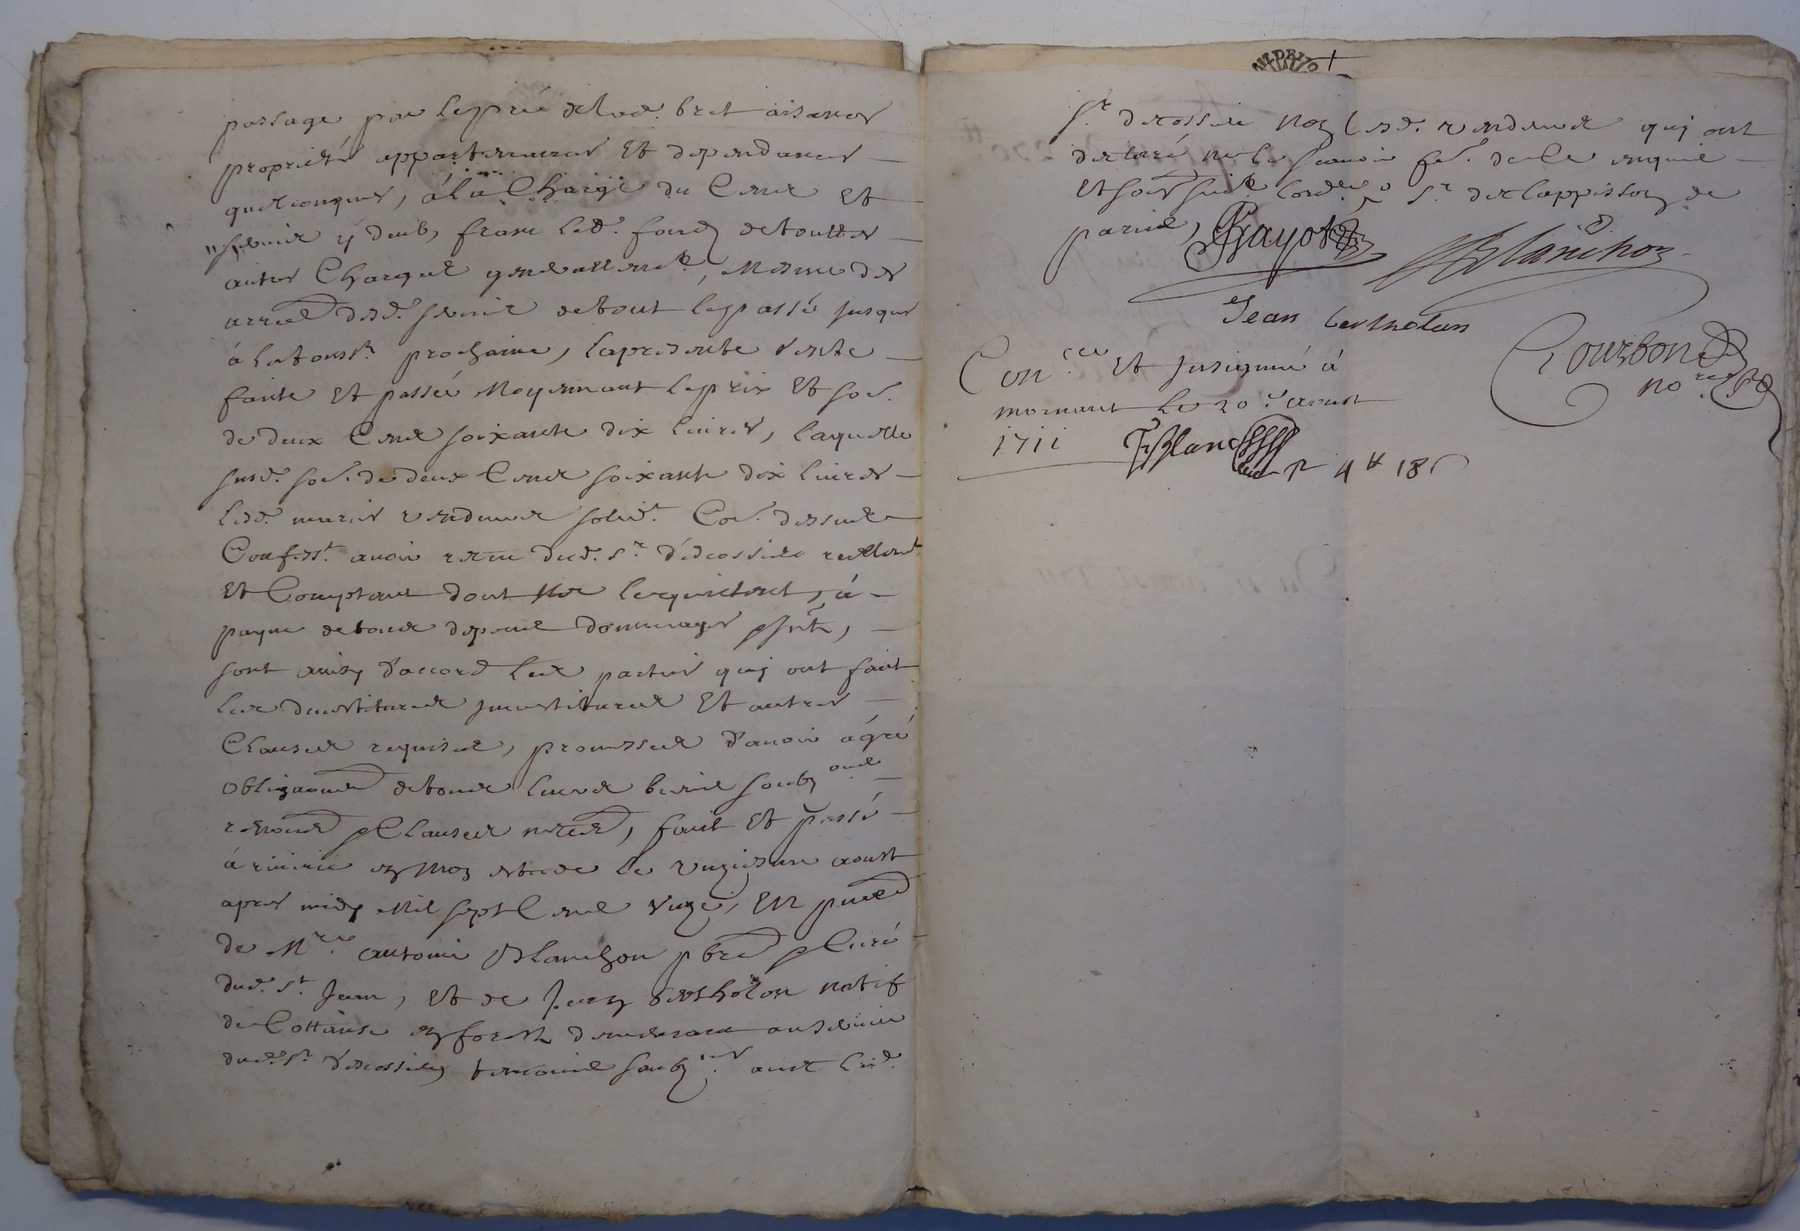 passage par le pré delad. bret aisances
proprietés appartenances Et dependances
quelconques, à la Charge du Cens Et
servis y deub, franc led. fond de touttes
autres Charges generallemt., Mesme des
arres desd. servis de tout le passé jusques
à la touss.t prochaine, la presente vente
faite Et passée Moyennant le prix Et so.
de deux Cens soixante dix livres, laquelle
susd. so. de deux Cens soixante dix livres
lesd. mariés vendeurs solid.t Co. dessus
Confess.t avoir receu dud. s.r d'escossieu reellem.t
Et Comptant dont l'en quittent, à
payne de tous depens dommages
sont ainsy d'accord les parties quj ont fait
les devestitures jnvestitures Et autres
Clauses requises, promesses d'avoir àgré
obligaons de tous leurs biens soubz.ons
renons Clauses necres, fait Et passé
à rivirie en mon estude le vingiesme aoust
apres midy Mil sept Cens unze, En pnce
de M.re antoine Blanchon pbre Curé
dud. s.t Jean, Et de Jean bertholon natif
de Cottance en forestz demeurant au service
dud. s.r d'escossieu tesmoins soubz.nes avec led.
s.r descossieu non lesd. vendeurs quj ont
declaré ne le scavoir fe. de ce enquis
Et s.r de lappisson de
partie, Gayot Blanchon
Jean bertholon
Courbon no.re
Con.lle Et Jnsignué à
mornant le 20.e aoust
1711 Blanc